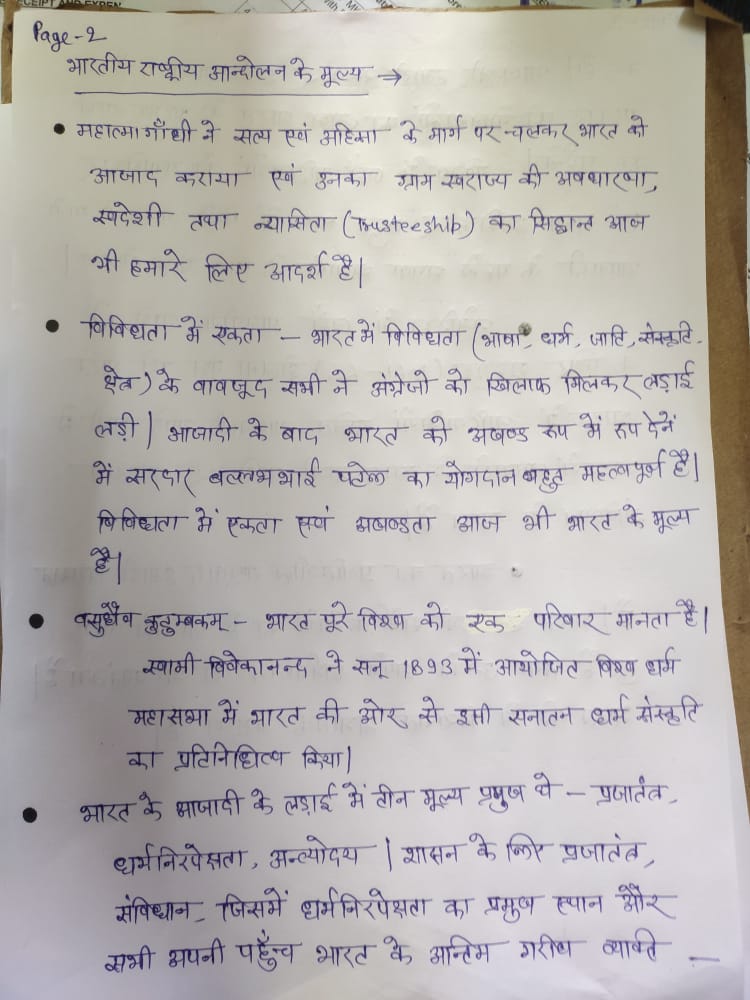 Page-2
भारतीय राष्ट्रीय आन्दोलन के मूल्य →
• महात्मा गाँधी ने सत्य एवं अहिंसा के मार्ग पर चलकर भारत को
आजाद कराया एवं उनका ग्राम स्वराज्य की अवधारणा,
स्वदेशी तथा न्यासिता (Trusteeship) का सिद्धान्त आज
भी हमारे लिए आदर्श है|
• विविधता में एकता – भारत में विविधता (भाषा, धर्म, जाति, संस्कृति,
क्षेत्र) के बावजूद सभी ने अंग्रेजो को खिलाफ मिलकर लड़ाई
लड़ी| आजादी के बाद भारत को अखण्ड रूप में रूप देनें
में सरदार बल्लभभाई पटेल का योगदान बहुत महत्वपूर्ण है|
विविधता में एकता एवं अखण्डता आज भी भारत के मूल्य
है|
• वसुधैव कुटुम्बकम् – भारत पूरे विश्व को एक परिवार मानता है|
स्वामी विवेकानन्द ने सन् 1893 में आयोजित विश्व धर्म
महासभा में भारत की ओर से इसी सनातन धर्म संस्कृति
का प्रतिनिधित्व किया|
• भारत के आजादी के लड़ाई में तीन मूल्य प्रमुख थे – प्रजातंत्र,
धर्मनिरपेक्षता, अन्त्योदय | शासन के लिए प्रजातंत्र,
संविधान, जिसमें धर्मनिरपेक्षता का प्रमुख स्थान और
सभी अपनी पहुँच भारत के अन्तिम गरीब व्यक्ति –